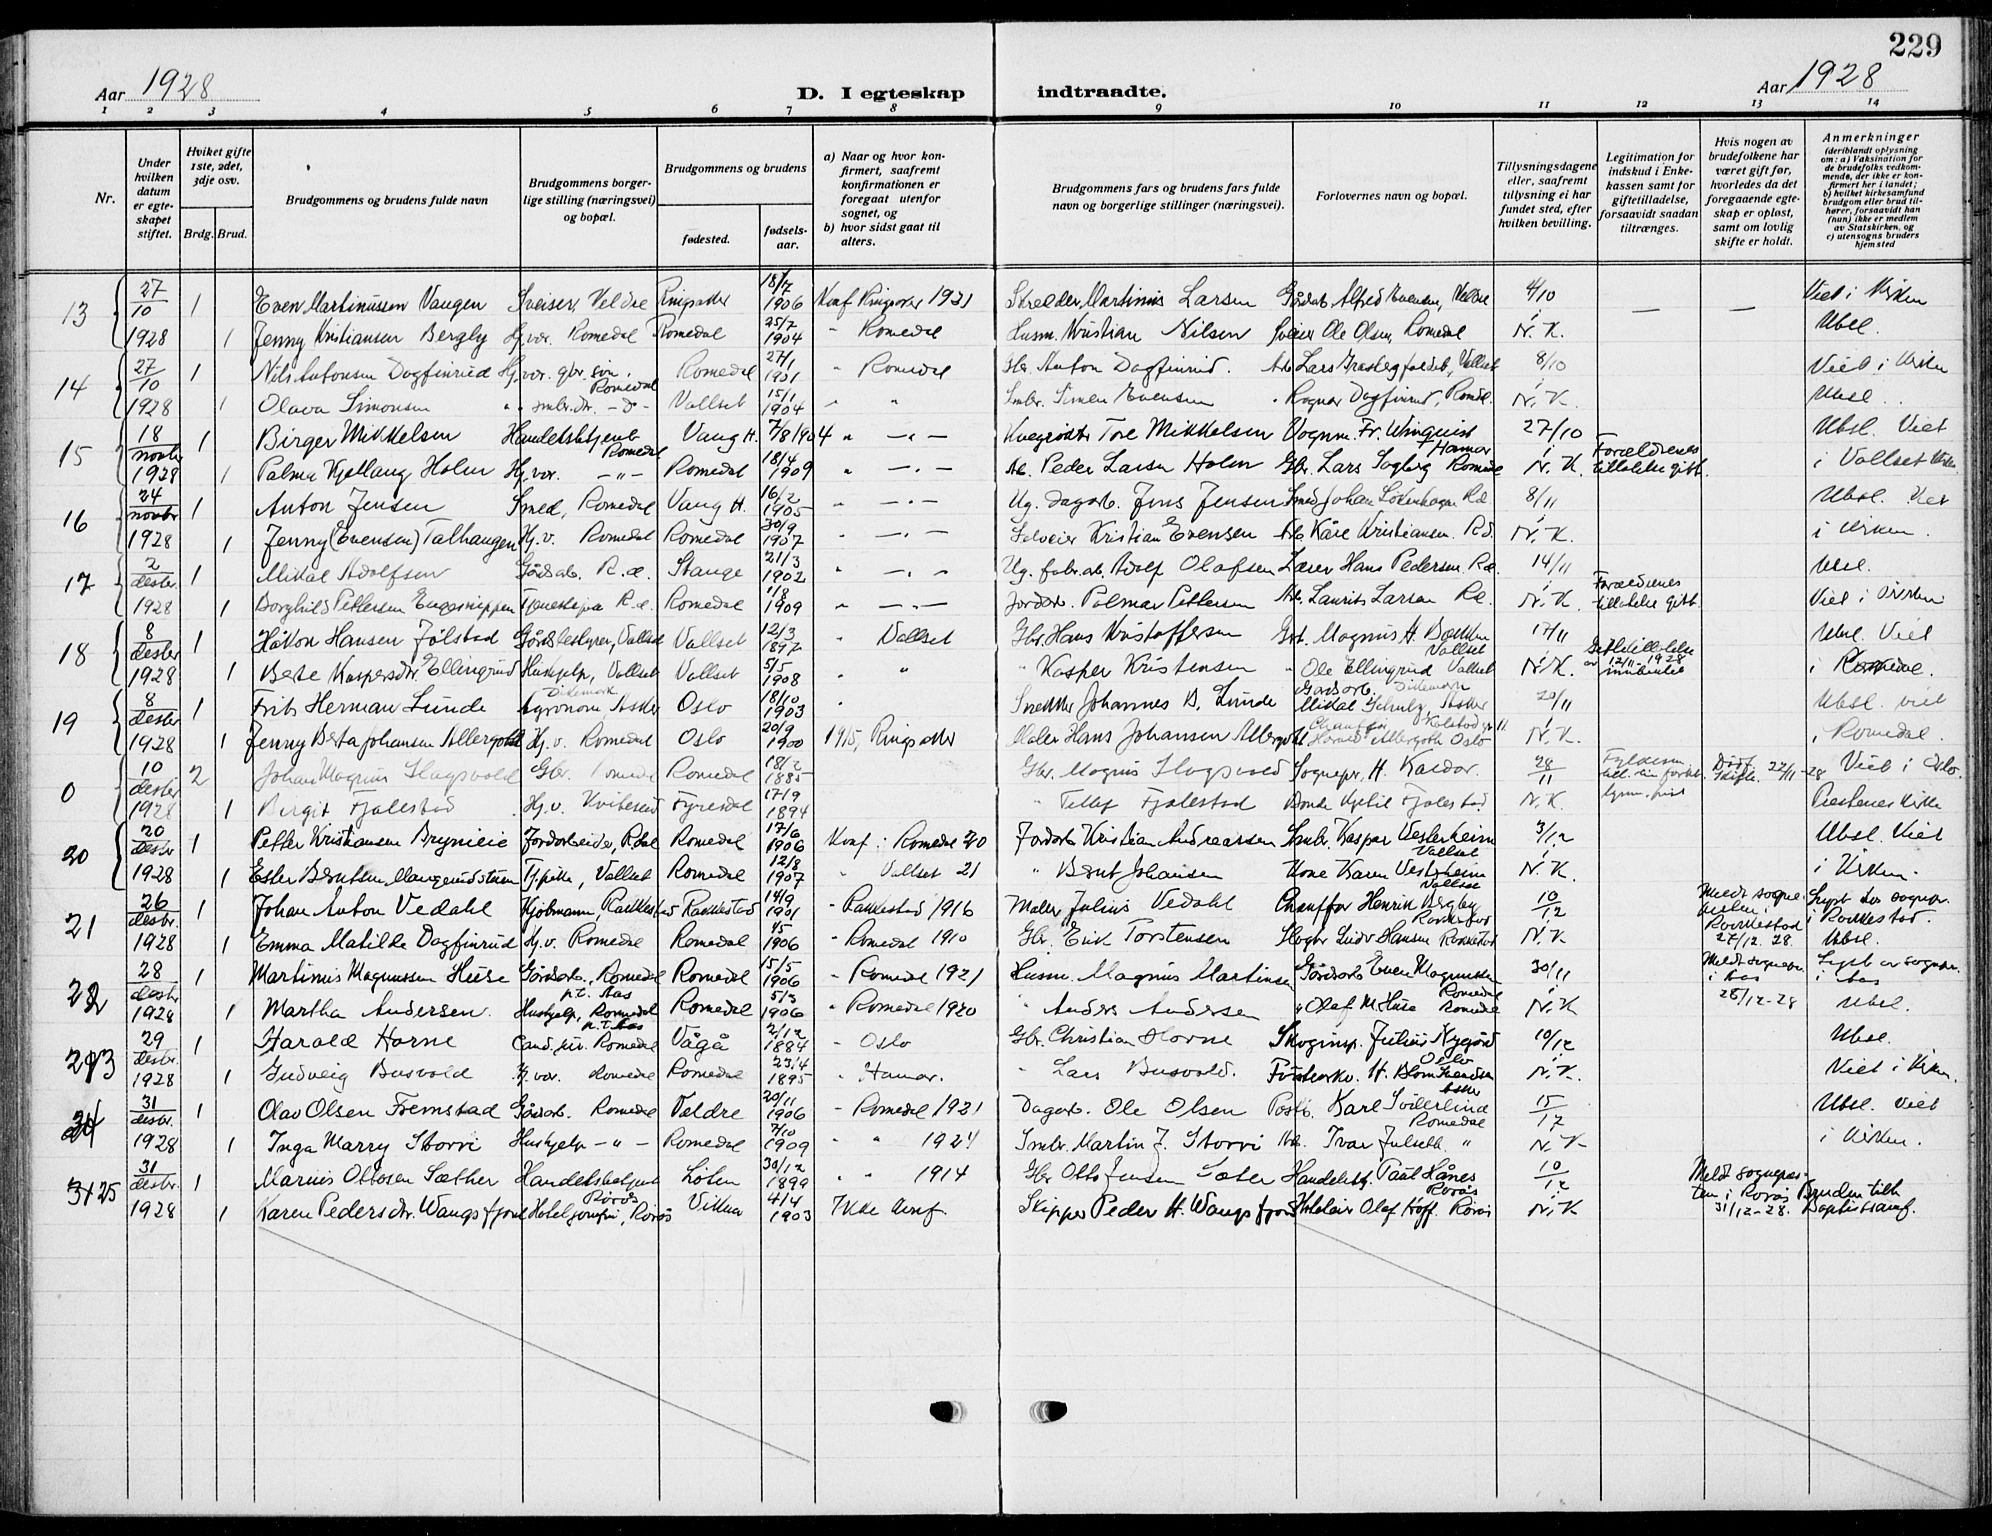 229
Aar 1928 D. I egteskap indtraadte. Aar 1928
1 2 3 4 5 6 7 8 9 10 11 12 13 14
Nr.
Under hvilken datum er egteskapet stiftet.
Hviket gifte 1ste, 2det, 3dje osv.
Brdg. Brud.
Brudgommens og brudens fulde navn
Brudgommens borgerlige stilling (næringsvei) og bopæl.
Brudgommens og brudens
fødested. fødselsaar.
a) Naar og hvor konfirmert, saafremt konfirmationen er foregaat utenfor sognet, og
b) hvor sidst gaat til alters.
Brudgommens fars og brudens fars fulde navn og borgerlige stillinger (næringsvei).
Forlovernes navn og bopæl.
Tillysningsdagene eller, saafremt tillysning ei har fundet sted, efter hvilken bevilling.
Legitimation for indskud i Enkekassen samt for giftetilladelse, forsaavidt saadan tiltrænges.
Hvis nogen av brudefolkene har været gift før, hvorledes da det foregaaende egteskap er opløst, samt om lovlig skifte er holdt.
Anmerkninger (deriblandt oplysning om: a) Vaksination for de brudefolks vedkommende, der ikke er konfirmert her i landet; b) hvilket kirkesamfund brudgom eller brud tilhører, forsaavidt han (hun) ikke er medlem av Statskirken, og c) utensogns bruders hjemsted
13 27/10 1 Even Martinussen Vangen Sveiser, Veldre Ringsaker 18/7 1906 Konf Ringsaker 1921 Skredder Martinus Larsen Gårdarb. Alfred Evensen, Veldre 4/10 — — Viet i Kirken
1928 1 Jenny Kristiansen Bergly Hj.vær. Romedal Romedal 25/2 1904 " Romedal Husm. Kristian Nilsen Sveiser Ole Olsen, Romedal N. K. Ubsl.
14 27/10 1 Nils Antonsen Dagfinrud Hj.vær. gbr. søn, Romedal Romedal 27/1 1901 " Romedal Gbr. Anton Dagfinrud. Arb Lars , Vallset 8/10 Viet i Kirken
1928 1 Olava Simonsen " " smbr.dr. - d - Vallset 15/1 1904 " " Smbr. Simen Evensen " Ragnar Dagfinrud, Romdl. N. K. Ubsl.
15 18/novbr 1 Birger Mikkelsen Handelsbetjent Romedal Vang H. 7/8 1904 " — " — Tore Mikkelsen Vognm. Fr. Winquist Hamar 27/10 Forældrenes Ubsl. Viet
1928 1 Palma Kjellaug Holm Hj.vær. — " — Romedal 18/4 1909 " — " — Arb. Peder Larsen Holm Gbr. Lars Sogberg Romedal N. K. tillatelse gitt. i Vallset Kirke
16 24/novbr 1 Anton Jensen Smed, Romedal Vang H. 16/2 1905 " — " — Ug. dagarb. Jens Jensen Smed Johan R.d. 8/11 Ubsl. Viet
1928 1 Jenny (Evensen) Talhaugen Hj.v. Romedal Romedal 30/9 1907 " — " — Selveier Kristian Evensen Arb Kåre Kristiansen. Rd. N. K. i Kirken.
17 2/desbr. 1 Mikal Adolfsen Gårdsarb. R.d. Stange 21/3 1902 " — " — Ug. fabr.arb. Adolf Olafsen Lærer Hans Pedersen R.d. 14/11 Forældrenes Ubsl.
1928 1 Borghild Pettersen Engesnippen Tjenestepike R.d. Romedal 1/8 1909 " — " — Jordarb. Palmar Pettersen Arb. Laurits Larsen R.d. N. K. tillatelse gitt. Viet i Kirken
18 8/desbr 1 Håkon Hansen Jølstad Gårdsbestyrer, Vallset Vallset 12/3 1897 " Vallset Gbr. Hans Kristoffersen Grb. Magnus H. Bækken Vallset 17/11 Ubsl. Viet
1928 1 Berte Kaspersdtr. Ellingrud Hushjelp, Vallset Vallset 5/5 1908 " " " Kasper Kristensen " Ole Ellingrud Vallset N. K. av 12/11-1928 i Romedal.
19 8/desbr 1 Frits Herman Lunde Agronom, Dikemark Asker Oslo 18/10 1903 " Snekker Johannes B. Lunde Gårdsarb. Mikal Dikemark Asker 20/11 Ubsl. viet
1928 1 Jenny Berta Johansen Allergodt Hj.v. Romedal Oslo 20/9 1900 1915, Ringsaker Maler Hans Johansen Allergodt Chauffør Allergodt Oslo N. K. i Romedal.
0 10/desbr 2 Johan Magnus Hagsvold Gbr. Romedal Romedal 18/2 1885 Gbr. Magnus Hagsvold Sognepr. H. Kaldor. 28/11 Død. Skifte. 22/11-28 Viet i Oslo.
1928 1 Birgit Fjalestad Hj.v. Kviteseid Fyresdal 17/9 1894 " Tellef Fjalestad Bonde Kjetil Fjalestad N. K. Kirke
20 20/desbr 1 Petter Kristiansen Brynieie Jordarbeider, R.dal Romedal 17/6 1906 Konf. : Romedal 20 Jordarb Kristian Andreassen Smbr. Kaspar Vesterheim Vallset 3/12 Ubsl. Viet
1928 1 Ester Berntsen Mangerudstuen Tj.pike, Vallset Romedal 12/8 1907 " Vallset 21 " Bernt Johansen Kone Karen Vesterheim Vallset N. K. i Kirken.
21 26/desbr. 1 Johan Anton Vedahl Kjøbmann, Rakkestad Rakkestad 14/9 1901 " Rakkestad 1916 Maler Julius Vedahl Chauffør Henrik Bergby Rakkestad 10/12 Meldt sogneprsten i Rakkestad 27/12 28. Lyst hos sognepr. i Rakkestad.
1928 1 Emma Matilde Dagfinrud Hj.v. Romedal Romedal 4/5 1906 " Romedal 1910 Gbr. Erik Torstensen Hansen Rakkestad N. K Ubsl.
22 28/desbr 1 Martinus Magnussen Huse Gårdsarb., Romedal p.t. Aas Romedal 15/5 1906 " Romedal 1921 Husm. Magnus Martinsen Gårdsarb Even Magnussen Romedal 30/11 Meldt sognepr. i Aas 28/12-28 Lyst av sognepr. i Aas
1928 1 Martha Andersen. Hushjelp, Romedal p.t. Aas Romedal 5/3 1906 " Romedal 1920 " Anders Andersen " Olaf M. Huse Romedal N. K Ubsl.
23 29/desbr. 1 Harald Horne Cand. jur. Romedal Vågå 2/12 1884 " Oslo Gbr. Christian Horne Skoginsp. Julius Nygård Oslo 10/12 Ubsl.
1928 1 Gudveig Busvold Hj.vær. Romedal Romedal 23/4 1895 " Hamar. " Lars Busvold. H. Blom Asker N. K. Viet i Kirken.
24 31/desbr. 1 Olav Olsen Fremstad Gårdsarb. Romedal Veldre 20/11 1906 " Romedal 1921 Dagarb. Ole Olsen Postb. Karl Söderlind Romedal 15/12 Ubsl. Viet
1928 1 Inga Marry Storvi Hushjelp — " — Romedal 7/10 1909 " " 1924 Smbr. Martin J. Storvi Arb. Ivar Julseth. " N. K i Kirken.
25 31/desbr. 1 Marius Ottosen Sæther Handelsbetjent Løten 30/12 1899 " " 1914 Gbr Otto Jensen Sæter Handelsbtj. Paul Hånes Røros 10/12 Meldt sogneprsten i Røros 31/12-28. Bruden tilh. Baptistsamf.
1928 1 Karen Pedersdtr. Wangsfjord Røros Hoteljomfru, Røros Vikna 4/4 1903 Ikke konf. Skipper Peder H. Wangsfjord Hoteleier Olaf Hoff. Røros N. K